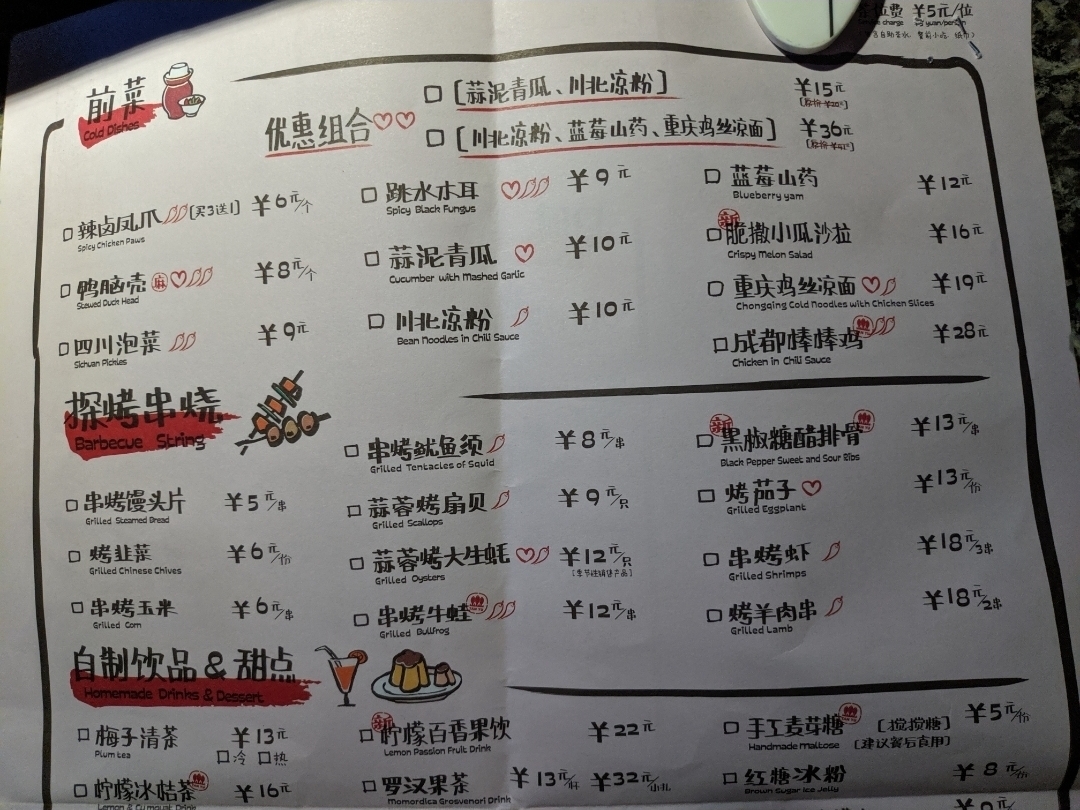 ¥5元/位
前菜
Cold Dishes
优惠组合
[蒜泥青瓜、川北凉粉] ¥15元
[川北凉粉、蓝莓山药、重庆鸡丝凉面] ¥36元
辣卤凤爪 [买3送1] ¥6元/个
Spicy Chicken Paws
鸭脑壳 麻 ¥8元/个
Stewed Duck Head
四川泡菜 ¥9元
Sichuan Pickles
跳水木耳 ¥9元
Spicy Black Fungus
蒜泥青瓜 ¥10元
Cucumber with Mashed Garlic
川北凉粉 ¥10元
Bean Noodles in Chili Sauce
蓝莓山药 ¥12元
Blueberry yam
新
脆撒小瓜沙拉 ¥16元
Crispy Melon Salad
重庆鸡丝凉面 ¥19元
Chongqing Cold Noodles with Chicken Slices
成都棒棒鸡 ¥28元
Chicken in Chili Sauce
探烤串烧
Barbecue String
串烤馒头片 ¥5元/串
Grilled Steamed Bread
烤韭菜 ¥6元/份
Grilled Chinese Chives
串烤玉米 ¥6元/串
Grilled Corn
串烤鱿鱼须 ¥8元/串
Grilled Tentacles of Squid
蒜蓉烤扇贝 ¥9元/只
Grilled Scallops
蒜蓉烤大生蚝 ¥12元/只
Grilled Oysters [季节性销售产品]
串烤牛蛙 ¥12元/串
Grilled Bullfrog
新
黑椒糖醋排骨 ¥13元/串
Black Pepper Sweet and Sour Ribs
烤茄子 ¥13元/份
Grilled Eggplant
串烤虾 ¥18元/3串
Grilled Shrimps
烤羊肉串 ¥18元/2串
Grilled Lamb
自制饮品 & 甜点
Homemade Drinks & Dessert
梅子清茶 ¥13元
Plum tea 冷 热
柠檬冰桔茶 ¥16元
新
柠檬百香果饮 ¥22元
Lemon Passion Fruit Drink
罗汉果茶 ¥13元/杯 ¥32元/小扎
Momordica Grosvenori Drink
手工麦芽糖 [搅搅糖] ¥5元/份
Handmade Maltose [建议餐后食用]
红糖冰粉 ¥8元/份
Brown Sugar Ice Jelly